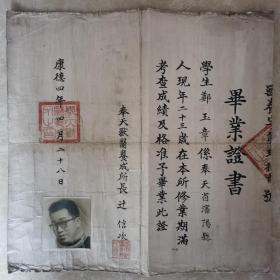 畢業證書
學生鄭玉章係奉天省瀋陽縣
人現年二十三歲在本所修業期滿
考查成績及格准予畢業此證
奉天獸醫養成所長辻信次
康德四年四月二十八日